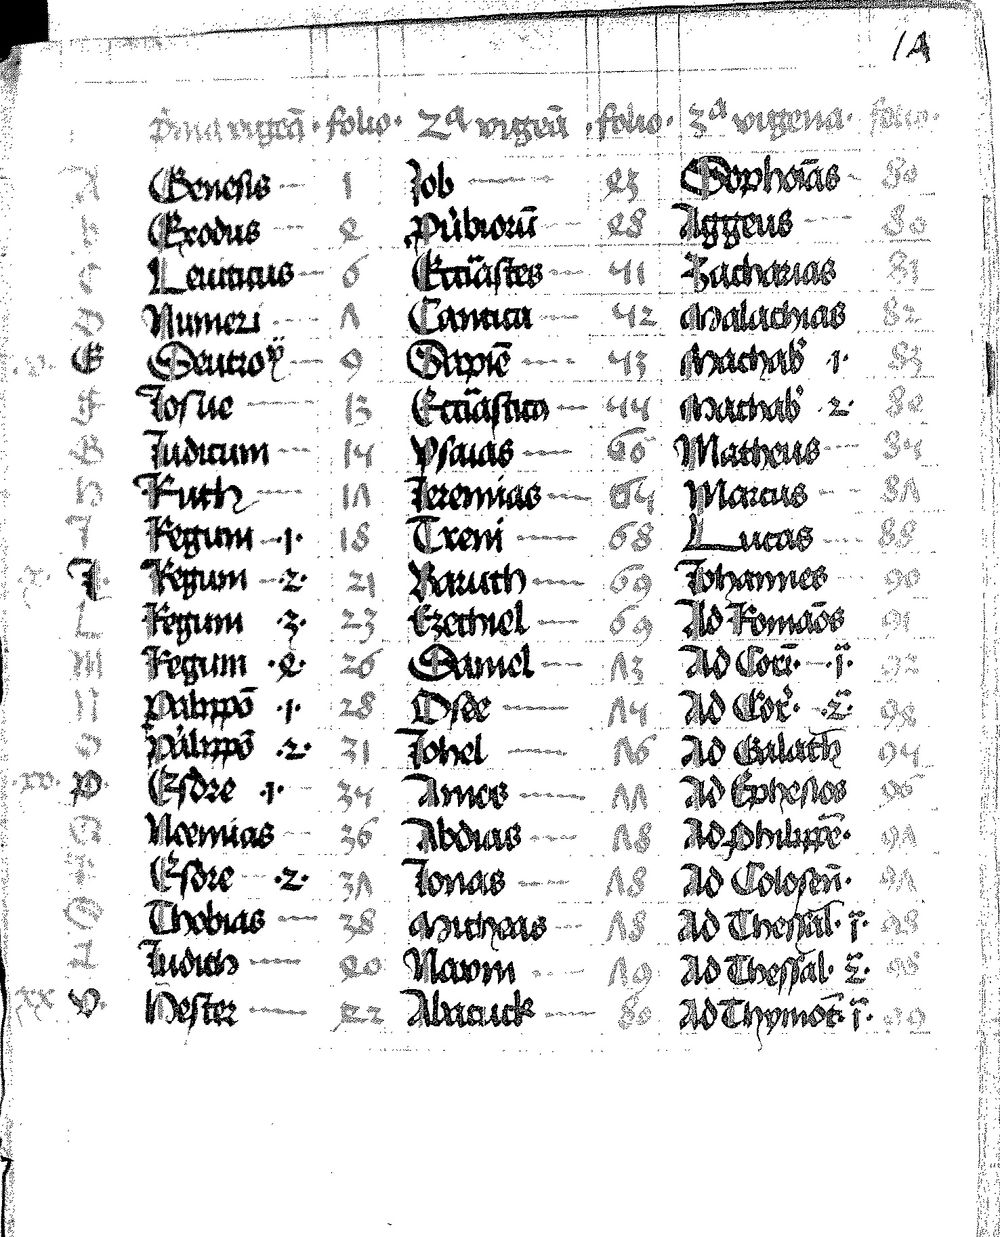 1A
p̃ma vigeã · folio · 2ª vigeã · folio · 3ª vigena · folio ·
A Genesis 1 Job 23 Sophoĩas 80
Exodus 2 Pũbiorũ 28 Aggeus 80
C Leuiticus 6 Ecc̃iastes 41 Zacharias 81
D Numeri Λ Cantica 42 Malachias 82
·v· E Deutro 9 Sapiẽ 43 Machab̃ 1· 83
F Josue 13 Ecc̃iastico 44 Machab̃ ·2·
G Judicum 14 Ysaias Matheus 84
H Ruth 1Λ Jeremias 64 Marcus 8Λ
I Regum ·1· 18 Treni 68 Lucas 88
·x· Regum ·2· 21 Baruch 69 Johannes 90
L Regum ·3· 23 Ezechiel 69 Ad Romãos 91
M Regum 26 Daniel Λ3 Ad Corĩ· ·ĩ·
N Palippõ ·1· 28 Osee Λ4 Ad Cor̃· ·2̃·
O Palippõ ·2· 31 Johel Λ6 Ad Galath 94
·xv· P Esdre ·1· 34 Amos ΛΛ Ad Ephesios 96
Q Neemias 36 Abdias Λ8 Ad philippẽ· 9Λ
R Esdre ·2· 3Λ Jonas Λ8 Ad Coloseñ· 9Λ
S Thobias 38 Micheas Λ8 Ad Thessal· ĩ· 98
T Judich Naoum Λ9 Ad Thessal· 2̃·
xx V· Hester Abacuck 80 Ad Thymot̃· ĩ· 99